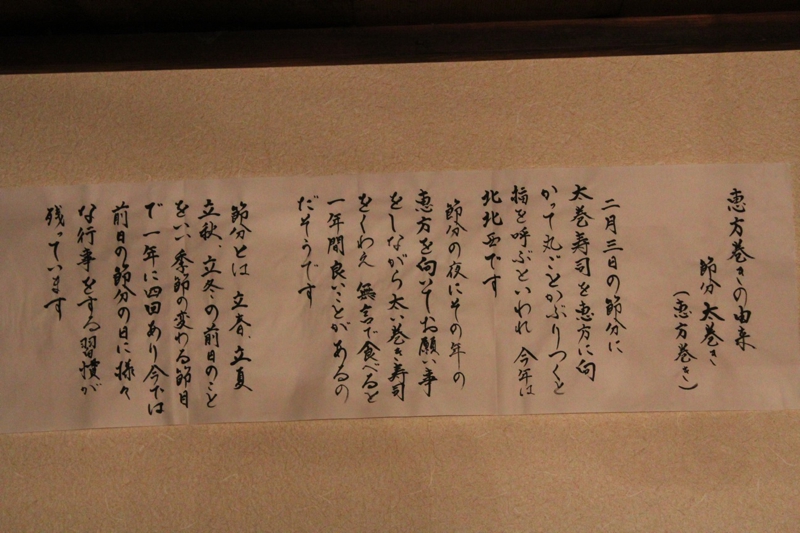 恵方巻きの由来
節分 太巻き
(恵方巻き)
二月三日の節分に
太巻寿司を恵方に向
かって丸ごとかぶりつくと
福を呼ぶといわれ 今年は
北北西です
節分の夜にその年の
恵方を向いてお願い事
をしながら太い巻き寿司
をくわえ 無言で食べると
一年間良いことがあるの
だそうです
節分とは 立春、立夏
立秋、立冬の前日のこと
をいい、季節の変わる節目
で一年に四回あり今では
前日の節分の日に様々
な行事をする習慣が
残っています